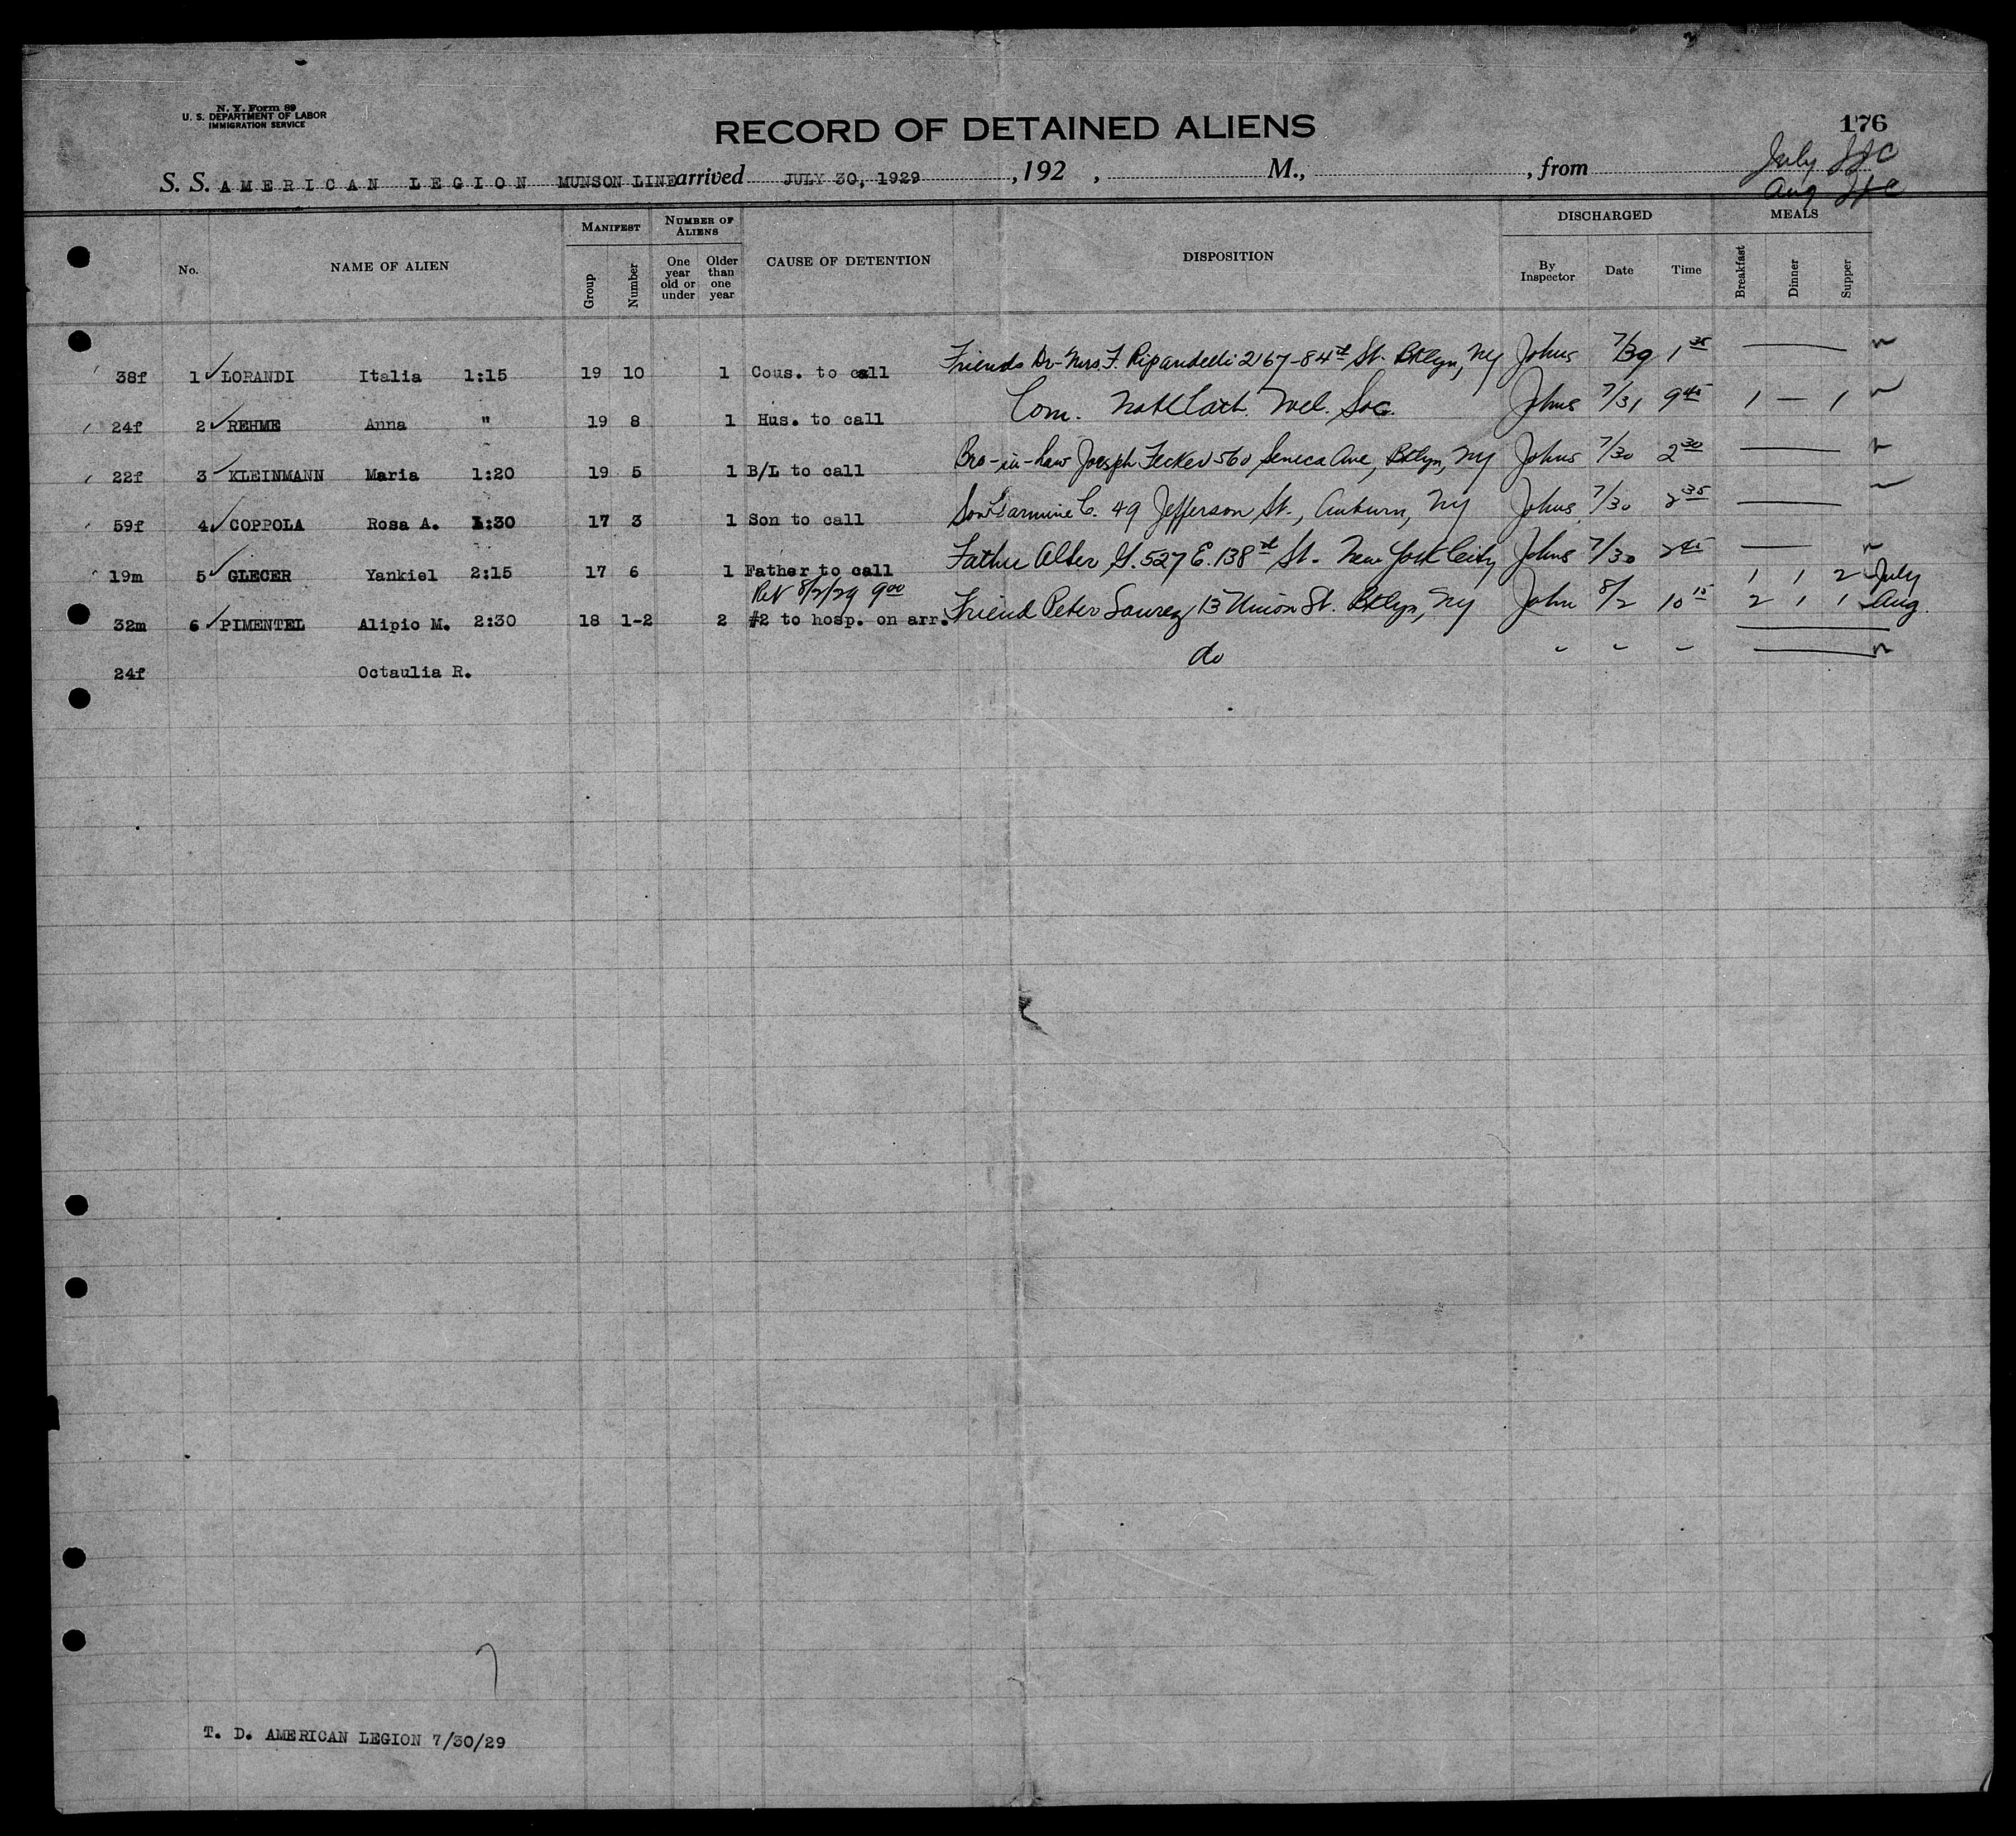 N. Y. Form 89
U. S. DEPARTMENT OF LABOR
IMMIGRATION SERVICE
RECORD OF DETAINED ALIENS
176
July
S. S. AMERICAN LEGION MUNSON LINE arrived JULY 30, 1929 , 192 , M., , from
Aug
No. NAME OF ALIEN MANIFEST Group Number NUMBER OF ALIENS One year old or under Older than one year CAUSE OF DETENTION DISPOSITION DISCHARGED By Inspector Date Time MEALS Breakfast Dinner Supper
38f 1 LORANDI Italia 1:15 19 10 1 Cous. to call Friends Dr-Mrs. F. Ripandelli 2167-84th St. Bklyn, NY Johns 7/30 1 35
24f 2 REHME Anna " 19 8 1 Hus. to call Com. Natl Cath. Wel. Soc. Johns 7/31 9 45 1 — 1
22f 3 KLEINMANN Maria 1:20 19 5 1 B/L to call Bro-in-law Joesph Fecker 560 Seneca Ave, Bklyn, NY Johns 7/30 2 30
59f 4 COPPOLA Rosa A. 1:30 17 3 1 Son to call Son Carmine C. 49 Jefferson St., Auburn, NY Johns 7/30 2 35
19m 5 GLECER Yankiel 2:15 17 6 1 Father to call Father Alter G. 527 E. 138th St. New York City Johns 7/30 2 45
Ret 8/2/29 9 00 1 1 2 July
32m 6 PIMENTEL Alipio M. 2:30 18 1-2 2 #2 to hosp. on arr. Friend Peter Saurez 13 Union St. Bklyn, NY John 8/2 10 15 2 1 1 Aug.
24f Octaulia R. do " " "
T. D. AMERICAN LEGION 7/30/29